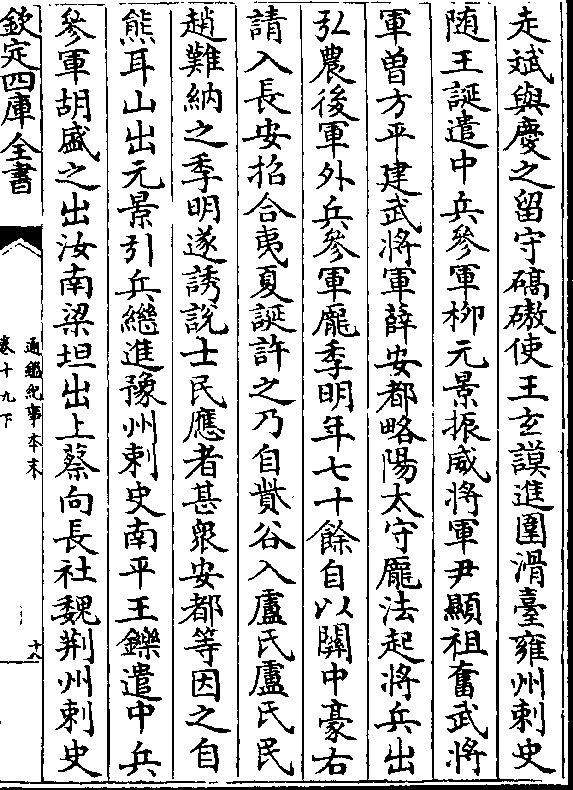 走斌與慶之留守碻磝使王玄謨進圍滑臺雍州刺史
随王誕遣中兵參軍柳元景振威將軍尹顯祖奮武將
軍曾方平建武將軍薛安都略陽太守龎法起將兵出
弘農後軍外兵參軍龎季明年七十餘自以關中豪右
請入長安招合夷夏誕許之乃自貲谷入盧氏盧氏民
趙難納之季明遂誘說士民應者甚衆安都等因之自
熊耳山出元景引兵繼進豫州刺史南平王鑠遣中兵
參軍胡盛之出汝南梁坦出上蔡向長社魏荆州刺史
欽定四庫全書
通鑑紀事本末
卷十九下
十八